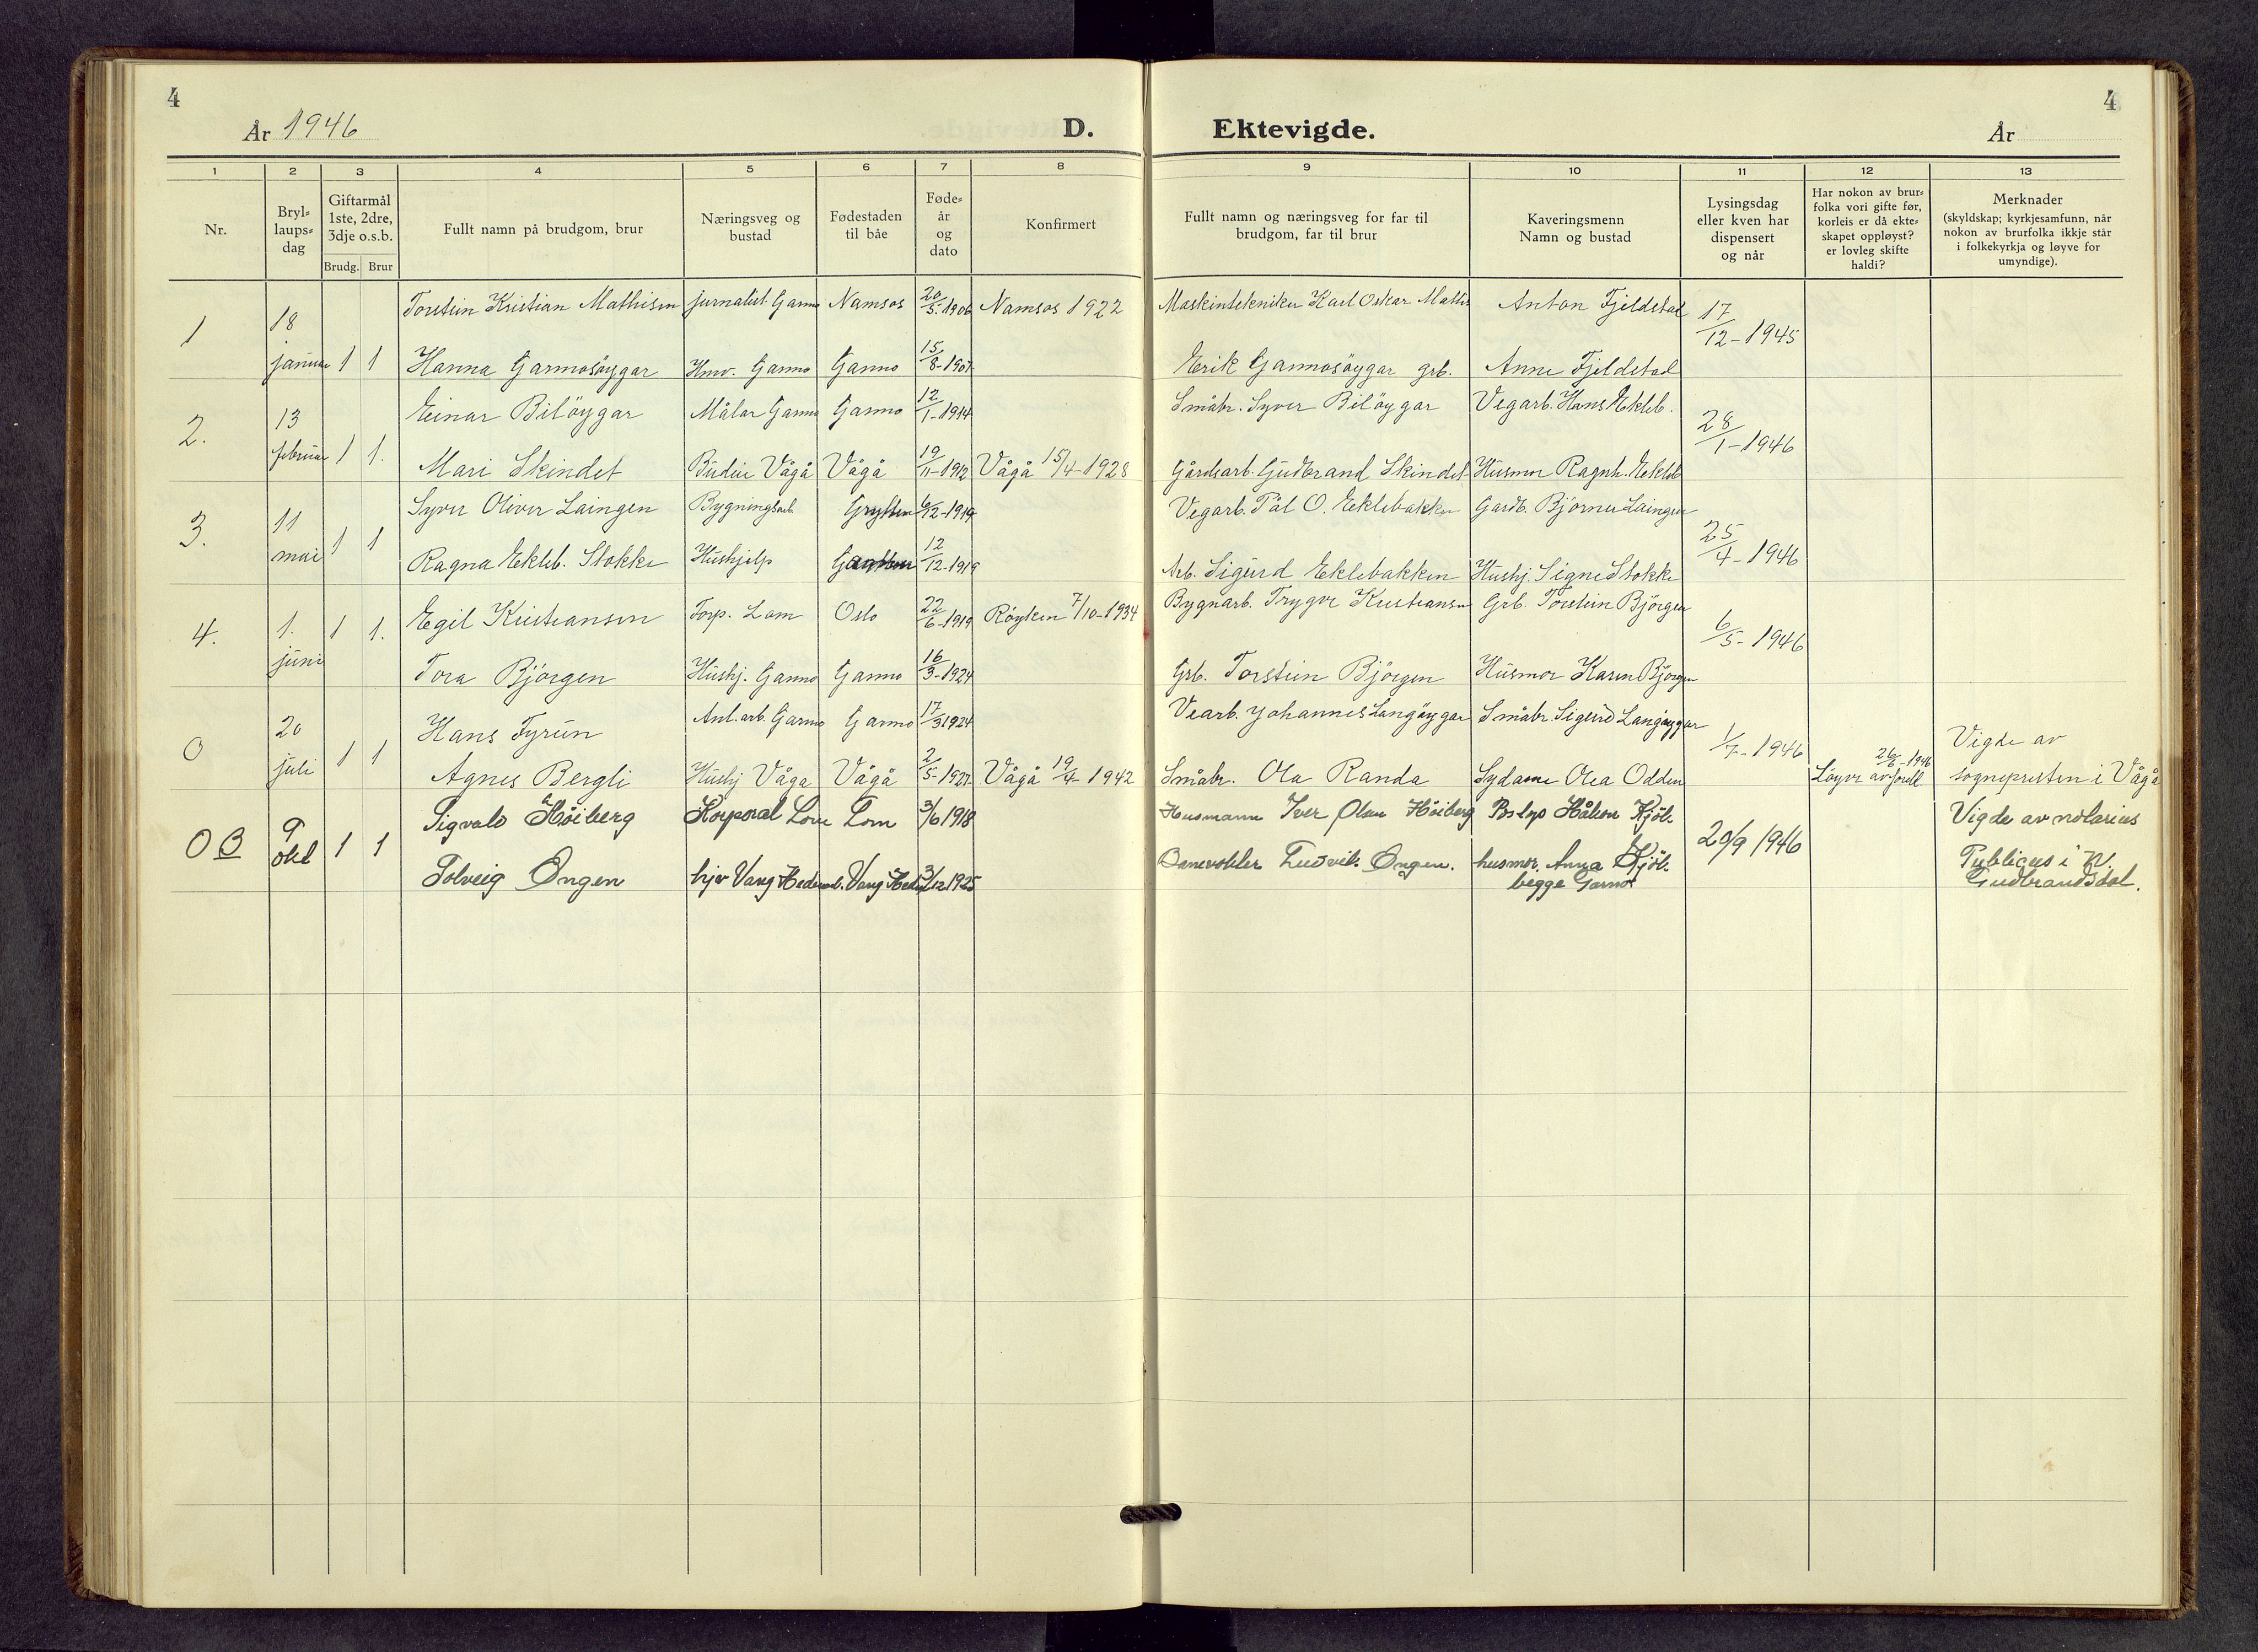 4
År 1946
D.
Ektevigde.
År
4
1 2 3 4 5 6 7 8 9 10 11 12 13
Nr.
Bryl-
laups-
dag
Giftarmål
1ste, 2dre,
3dje o.s.b.
Brudg. Brur
Fullt namn på brudgom, brur
Næringsveg og
bustad
Fødestaden
til båe
Føde-
år
og
dato
Konfirmert
Fullt namn og næringsveg for far til
brudgom, far til brur
Kaveringsmenn
Namn og bustad
Lysingsdag
eller kven har
dispensert
og når
Har nokon av brur-
folka vori gifte før,
korleis er då ekte-
skapet oppløyst?
er lovleg skifte
haldi?
Merknader
(skyldskap; kyrkjesamfunn, når
nokon av brurfolka ikkje står
i folkekyrkja og løyve for
umyndige).
1 18 Torstein Kristian Mathisen jurnalist. Garmo Namsos 20/5-1906 Namsos 1922 Maskintekniker Karl Oskar Mathis Anton Fjeldstad 17/12-1945
januar 1 1 Hanna Garmosöygar Hmv. Garmo Garmo 15/8-1907 Erik Garmosöygar grb. Anne Fjeldstad
2. 13 Einar Bilöygar Målar Garmo Garmo 12/1-1914 Småbr. Syver Bilöygar Vegarb. Hans Ekleb. 28/1-1946
februar 1 1. Mari Skindet Budeie Vågå Vågå 19/11-1912 Vågå 15/4-1928 Gårdsarb. Gudbrand Skindet Husmor Ragnh. Ekleb
3. 11 Syver Oliver Laingen Bygningsarb. Grytten 6/12-1919 Vegarb. Pål O. Eklebakken Gardb. Björner Laingen 25/4-1946
mai 1 1 Ragna Ekleb. Stokke Hushjelp 12/12-1919 Arb. Sigurd Eklebakken Hushj. Signe Stokke
4. 1. 1 1. Egil Kristiansen Torp. Lom Oslo 22/6-1919 Röyken 7/10-1934 Bygnarb. Trygve Kristiansen Grb. Torstein Björgen 6/5-1946
juni Tora Björgen Hushj. Garmo Garmo 16/3-1924 Grb. Torstein Björgen Husmor Karen Björgen
0 20 Hans Fyrün Anl.arb. Garmo Garmo 17/3 1924 Vearb. Johannes Langöygar Småbr. Sigurd Langöygar 1/7-1946 Vigde av
juli 1 1 Agnes Bergli Hushj Våga Vågå 2/5-1927 Vågå 19/4 1942 Småbr. Ola Randa Sydame Olea Odden Löyve av forell 26/6-1946 sognepresten i Vågå
0 9 Sigvald Höiberg Korporal Lom Lom 3/6 1918 Husmann Iver Olsen Höiberg Håkon Kjöl. 20/9 1946 Vigde av notarius
okt 1 1 Solveig Ongen hjv Vang Hedemark. Vang Hedm 3/12 1925 Banevokter Ludvik Ongen. husmor. Anna Kjöl. Publicus i N.
begge Garmo Gudbrandsdal.